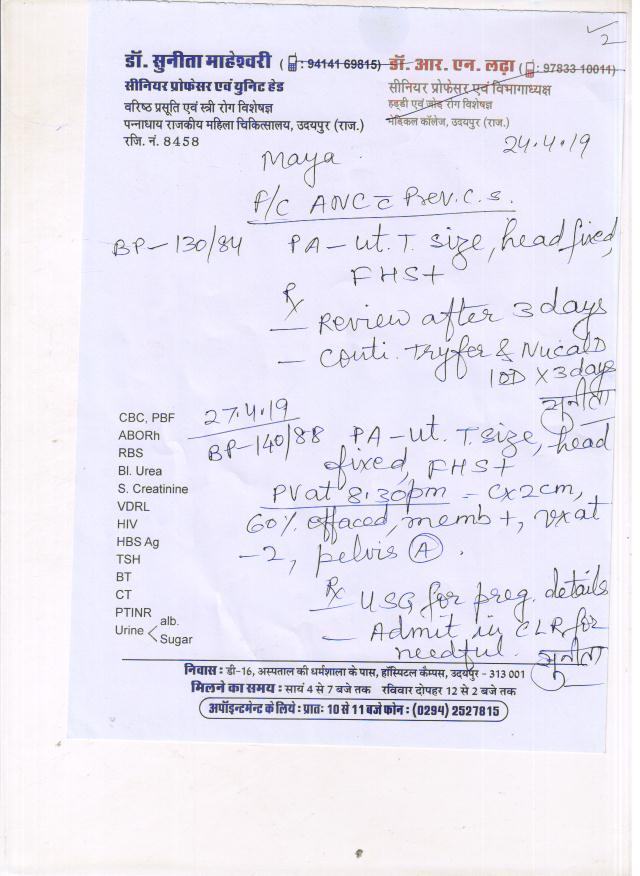 2
डॉ. सुनीता माहेश्वरी ( : 9414169815) डॉ. आर. एन. लढ़ा ( : 97833 10011)
सीनियर प्रोफेसर एवं यूनिट हेड सीनियर प्रोफेसर एवं विभागाध्यक्ष
वरिष्ठ प्रसूति एवं स्त्री रोग विशेषज्ञ हड्डी एवं जोड़ रोग विशेषज्ञ
पन्नाधाय राजकीय महिला चिकित्सालय, उदयपुर (राज.) मेडिकल कॉलेज, उदयपुर (राज.)
रजि. नं. 8458 24.4.19
Maya
F/C ANC c̄ Prev. C.S.
BP-130/84 PA-ut. T. size, head fixed,
FHS+
Rx
- Review after 3 days
- Conti. Tryfer & Nucal D
1OD X 3days
सुनीता
27.4.19
BP-140/88 PA-ut. T. size, head
fixed, FHS+
PV at 8:30pm - Cx 2cm,
60% effaced, memb+, vx at
-2, pelvis (A).
Rx
- USG for preg. details
- Admit in CLR for
needful. सुनीता
CBC, PBF
ABORh
RBS
Bl. Urea
S. Creatinine
VDRL
HIV
HBS Ag
TSH
BT
CT
PTINR
Urine < alb.
Sugar
निवास : डी-16, अस्पताल की धर्मशाला के पास, हॉस्पिटल कैम्पस, उदयपुर - 313 001
मिलने का समय : सायं 4 से 7 बजे तक रविवार दोपहर 12 से 2 बजे तक
अपॉइन्टमेन्ट के लिये : प्रातः 10 से 11 बजे फोन : (0294) 2527815